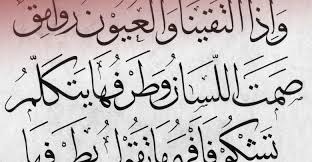 وَإِذَا التَقَيْنَا وَالْعُيُونُ رَوَامِقٌ
صَمَتَ اللِّسَانُ وَطَرْفُهَا يَتَكَلَّمُ
تَشْكُو فَأَفْهَمُ مَا تَقُولُ بِطَرْفِهَا